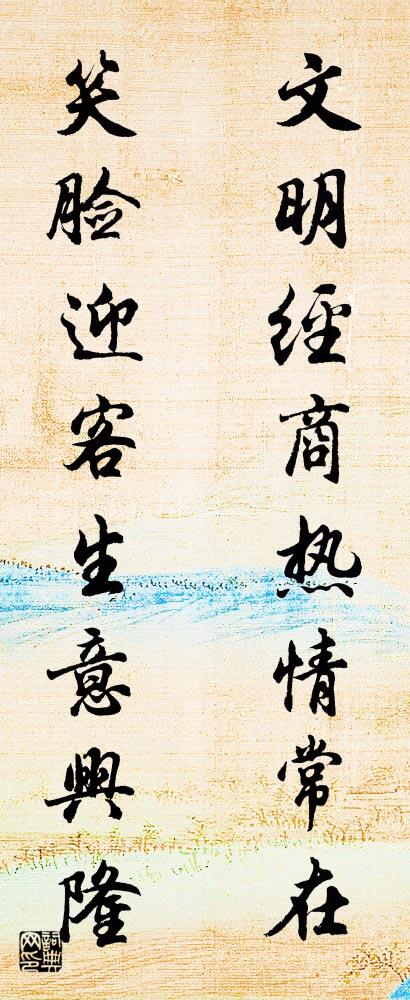 文明經商热情常在
笑脸迎客生意興隆
詞典
网印